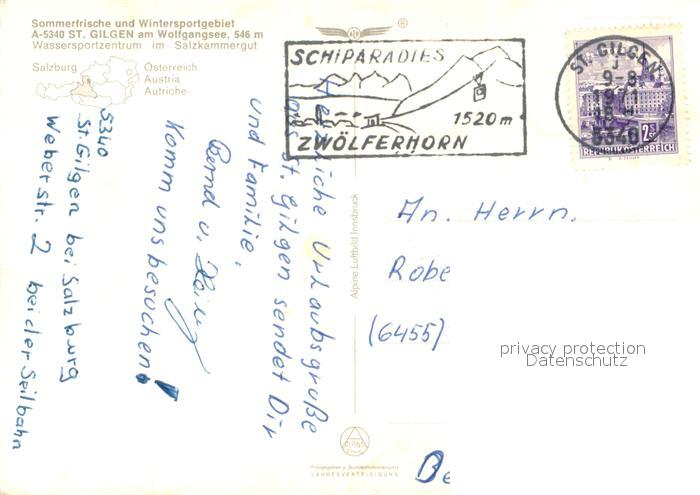 Sommerfrische und Wintersportgebiet
A-5340 ST. GILGEN am Wolfgangsee, 546 m
Wassersportzentrum im Salzkammergut
Salzburg
Österreich
Austria
Autriche
SCHIPARADIES
1520 m
ZWÖLFERHORN
ST. GILGEN
9-8
5340
2S
REPUBLIK ÖSTERREICH
Herzliche Urlaubsgrüße
aus St. Gilgen sendet Dir
und Familie,
Bernd u.
Komm uns besuchen!
5340
St. Gilgen bei Salzburg
Weberstr. 2 bei der Seilbahn
Alpine Luftbild Innsbruck
An. Herrn.
Robe
(6455)
Be
privacy protection
Datenschutz
ALPINE
Freigegeben v. Bundesministerium f.
LANDESVERTEIDIGUNG